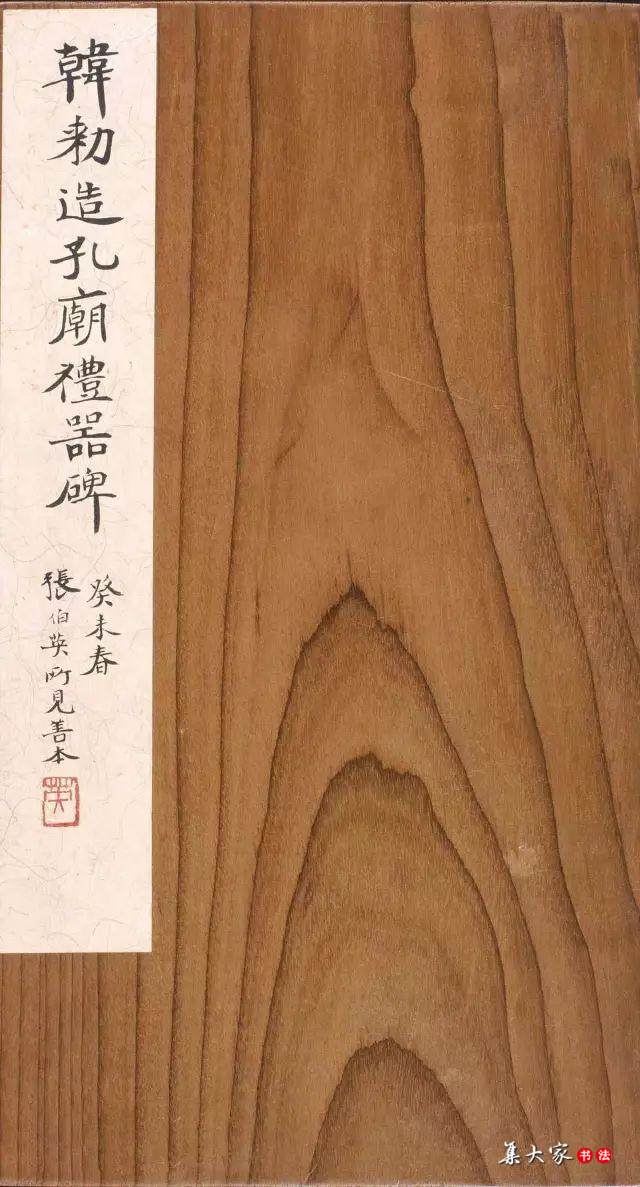 韓勑造孔廟禮器碑
癸未春
張伯英所見善本
英
集大家书法